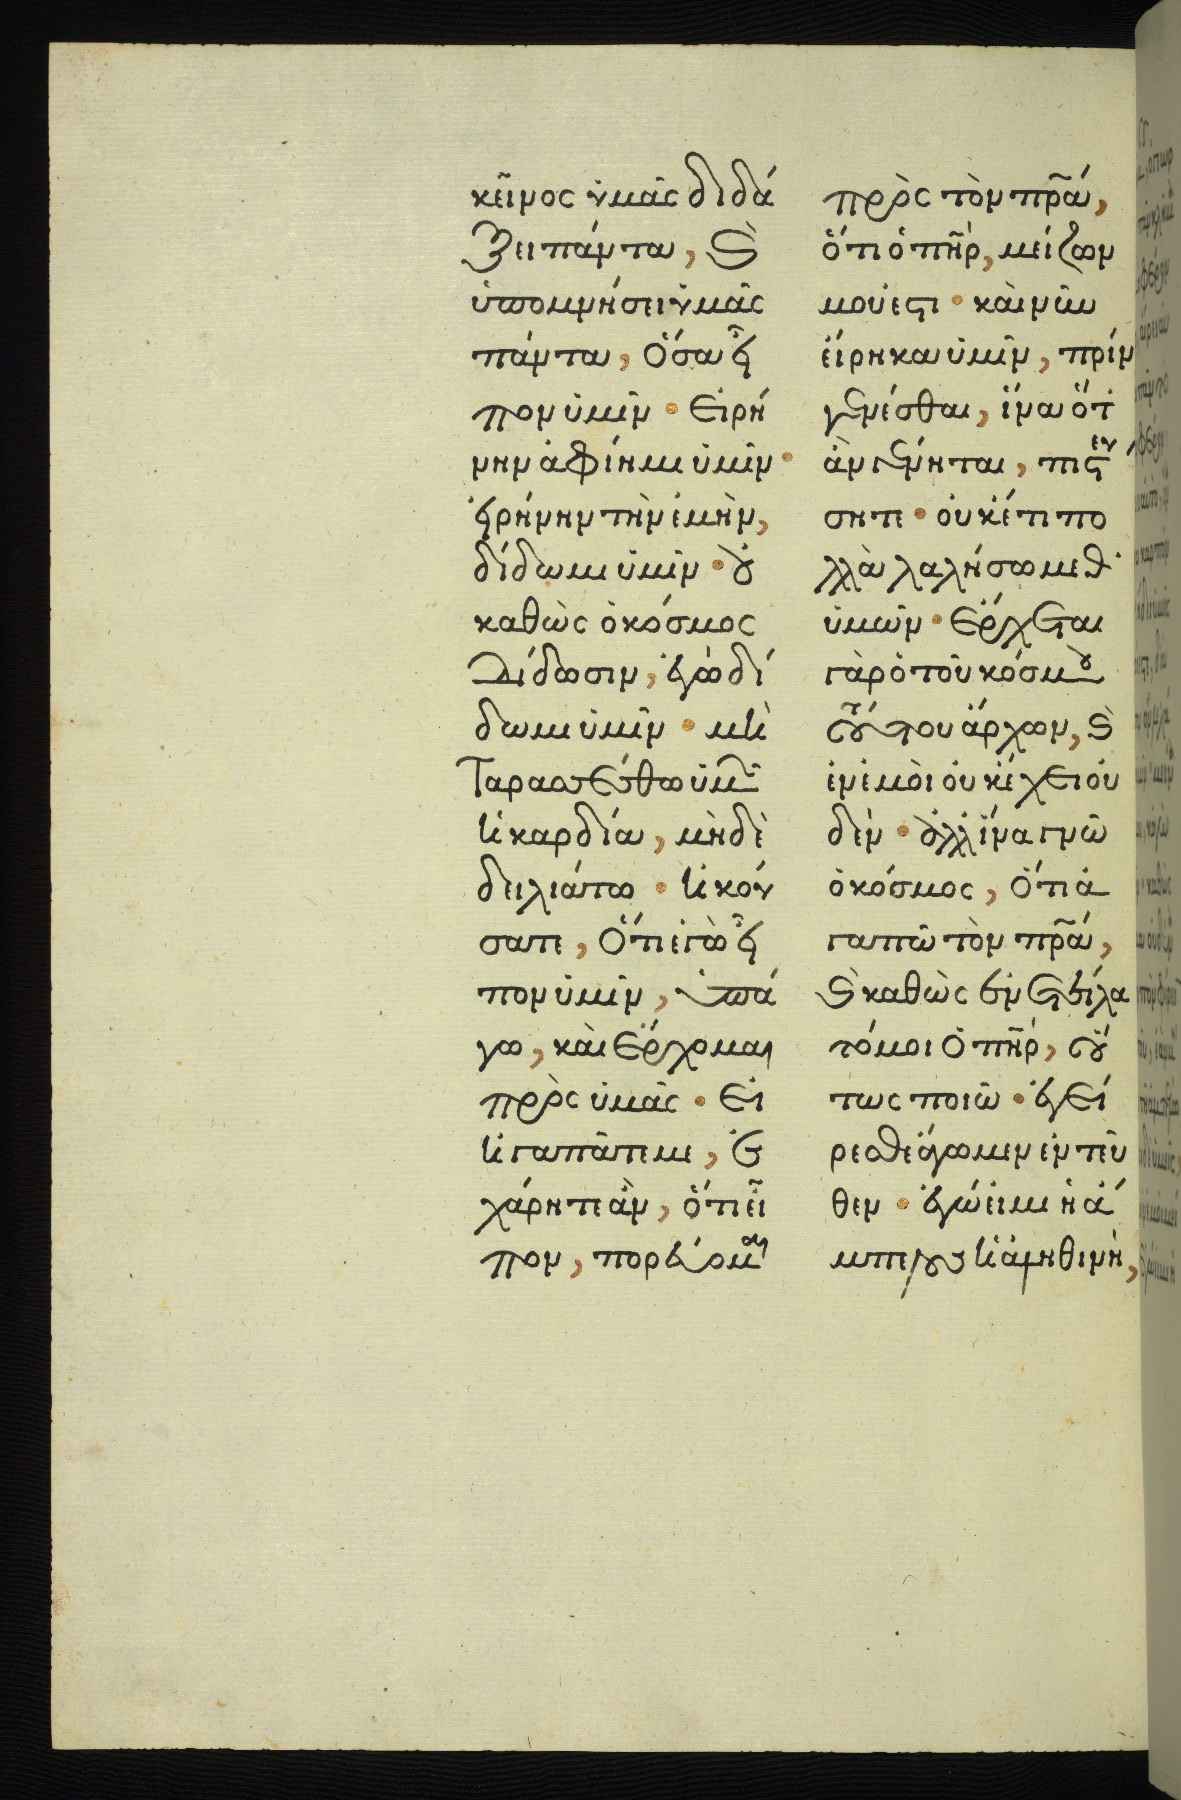 κεῖνος ὑμᾶς διδά
ξει πάντα, καὶ
ὑπομνήσει ὑμᾶς
πάντα, ὅσα εἶ
πον ὑμῖν · Εἰρή
νην ἀφίημι ὑμῖν ·
εἰρήνην τὴν ἐμὴν,
δίδωμι ὑμῖν · οὐ
καθὼς ὁ κόσμος
δίδωσιν, ἐγὼ δί
δωμι ὑμῖν · μὴ
Ταρασσέσθω ὑμῶν
ἡ καρδία, μηδὲ
δειλιάτω · ἠκού
σατε, ὅτι ἐγὼ εἶ
πον ὑμῖν, ὑπά
γω, καὶ ἔρχομαι
πρὸς ὑμᾶς · Εἰ
ἠγαπᾶτε με, ἐ
χάρητε ἂν, ὅτι εἶ
πον, πορεύομαι
πρὸς τὸν πρ̅α,
ὅτι ὁ πη̅ρ, μείζων
μού ἐστι · καὶ νῦν
εἴρηκα ὑμῖν, πρίν
γενέσθαι, ἵνα ὅτ
ἂν γένηται, πιστεύ
σητε · οὐκέτι πο
λλὰ λαλήσω μεθ'
ὑμῶν · Ἔρχεται
γὰρ ὁ τοῦ κόσμου
τούτου ἄρχων, καὶ
ἐν ἐμοὶ οὐκ ἔχει οὐ
δέν · ἀλλ' ἵνα γνῶ
ὁ κόσμος, ὅτι ἀ
γαπῶ τὸν πρ̅α,
καὶ καθὼς ἐνετείλα
τό μοι ὁ πη̅ρ, οὕ
τως ποιῶ · ἐγεί
ρεσθε ἄγωμεν ἐντεῦ
θεν · ἐγώ εἰμι ἡ ἄ
μπελος ἡ ἀληθινὴ,